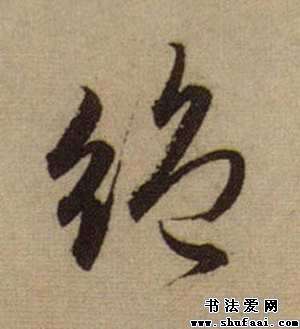 絕
书法爱网
www.shufaai.com